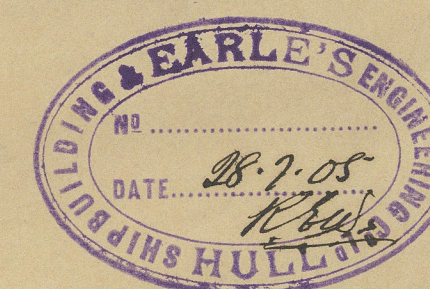 EARLE'S
SHIPBUILDING & ENGINEERING Cº LTD
HULL
Nº
DATE 28.7.05